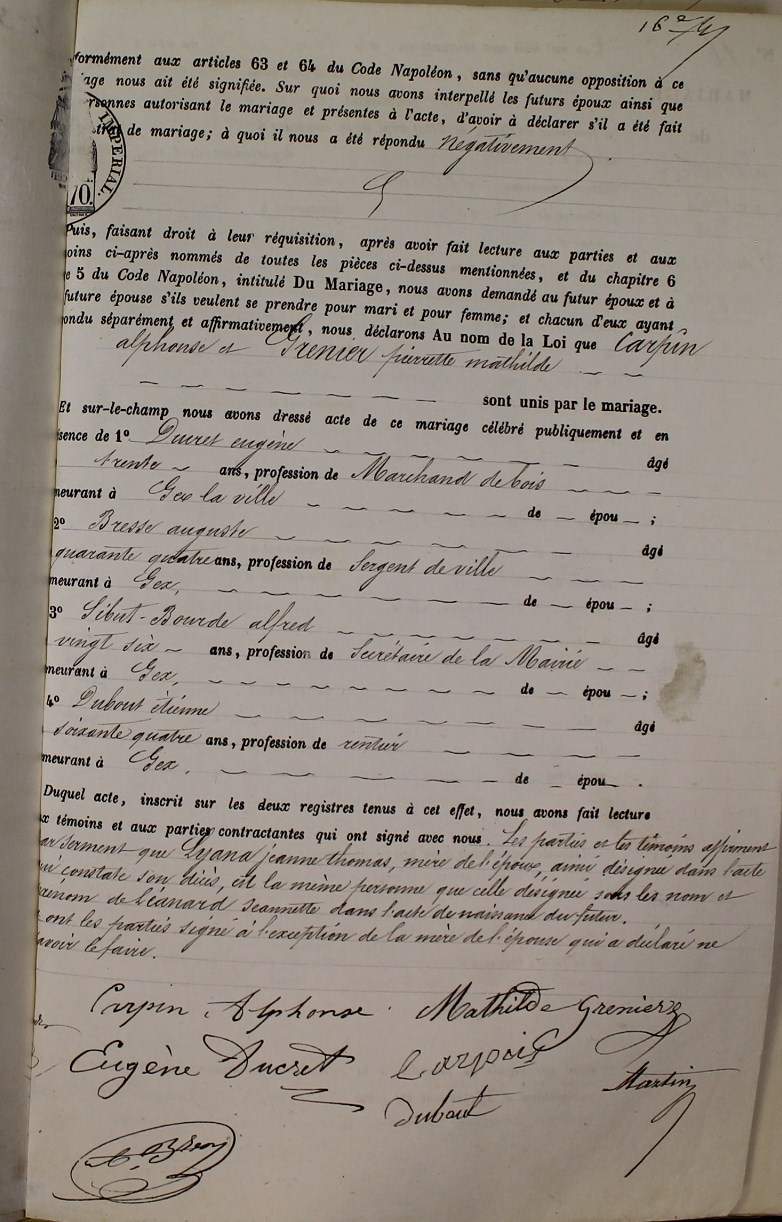 formément aux articles 63 et 64 du Code Napoléon, sans qu'aucune opposition à ce
age nous ait été signifiée. Sur quoi nous avons interpellé les futurs époux ainsi que
rsonnes autorisant le mariage et présentes à l'acte, d'avoir à déclarer s'il a été fait
de mariage; à quoi il nous a été répondu Négativement
IMPERIAL.
70.
Puis, faisant droit à leur réquisition, après avoir fait lecture aux parties et aux
oins ci-après nommés de toutes les pièces ci-dessus mentionnées, et du chapitre 6
e 5 du Code Napoléon, intitulé Du Mariage, nous avons demandé au futur époux et à
future épouse s'ils veulent se prendre pour mari et pour femme; et chacun d'eux ayant
ondu séparément et affirmativement, nous déclarons Au nom de la Loi que Carpin
alphonse et Grenier pierrette mathilde
sont unis par le mariage.
Et sur-le-champ nous avons dressé acte de ce mariage célébré publiquement et en
ésence de 1º Ducret eugène âgé
trente ans, profession de Marchand de bois
meurant à Gex la ville de — épou — ;
2º Bresse auguste âgé
quarante quatre ans, profession de Sergent de ville
meurant à Gex, de — épou — ;
3º Sibut-Bourde alfred âgé
vingt six ans, profession de Secrétaire de la Mairie
meurant à Gex, de — épou — ;
4º Dubout étienne âgé
soixante quatre ans, profession de rentier
meurant à Gex. de — épou — .
Duquel acte, inscrit sur les deux registres tenus à cet effet, nous avons fait lecture
x témoins et aux parties contractantes qui ont signé avec nous. Les parties et les témoins affirment
ar serment que Lyana jeanne thomas, mère de l'époux, ainsi désignée dans l'acte
ui constate son décès, est la même personne que celle désignée sous les nom et
renom de Léanard Jeannette dans l'acte de naissance du futur.
ont les parties signé à l'exception de la mère de l'épouse qui a déclaré ne
avoir le faire.
Carpin Alphonse Mathilde Grenier
Eugène Ducret
Martin
Dubout